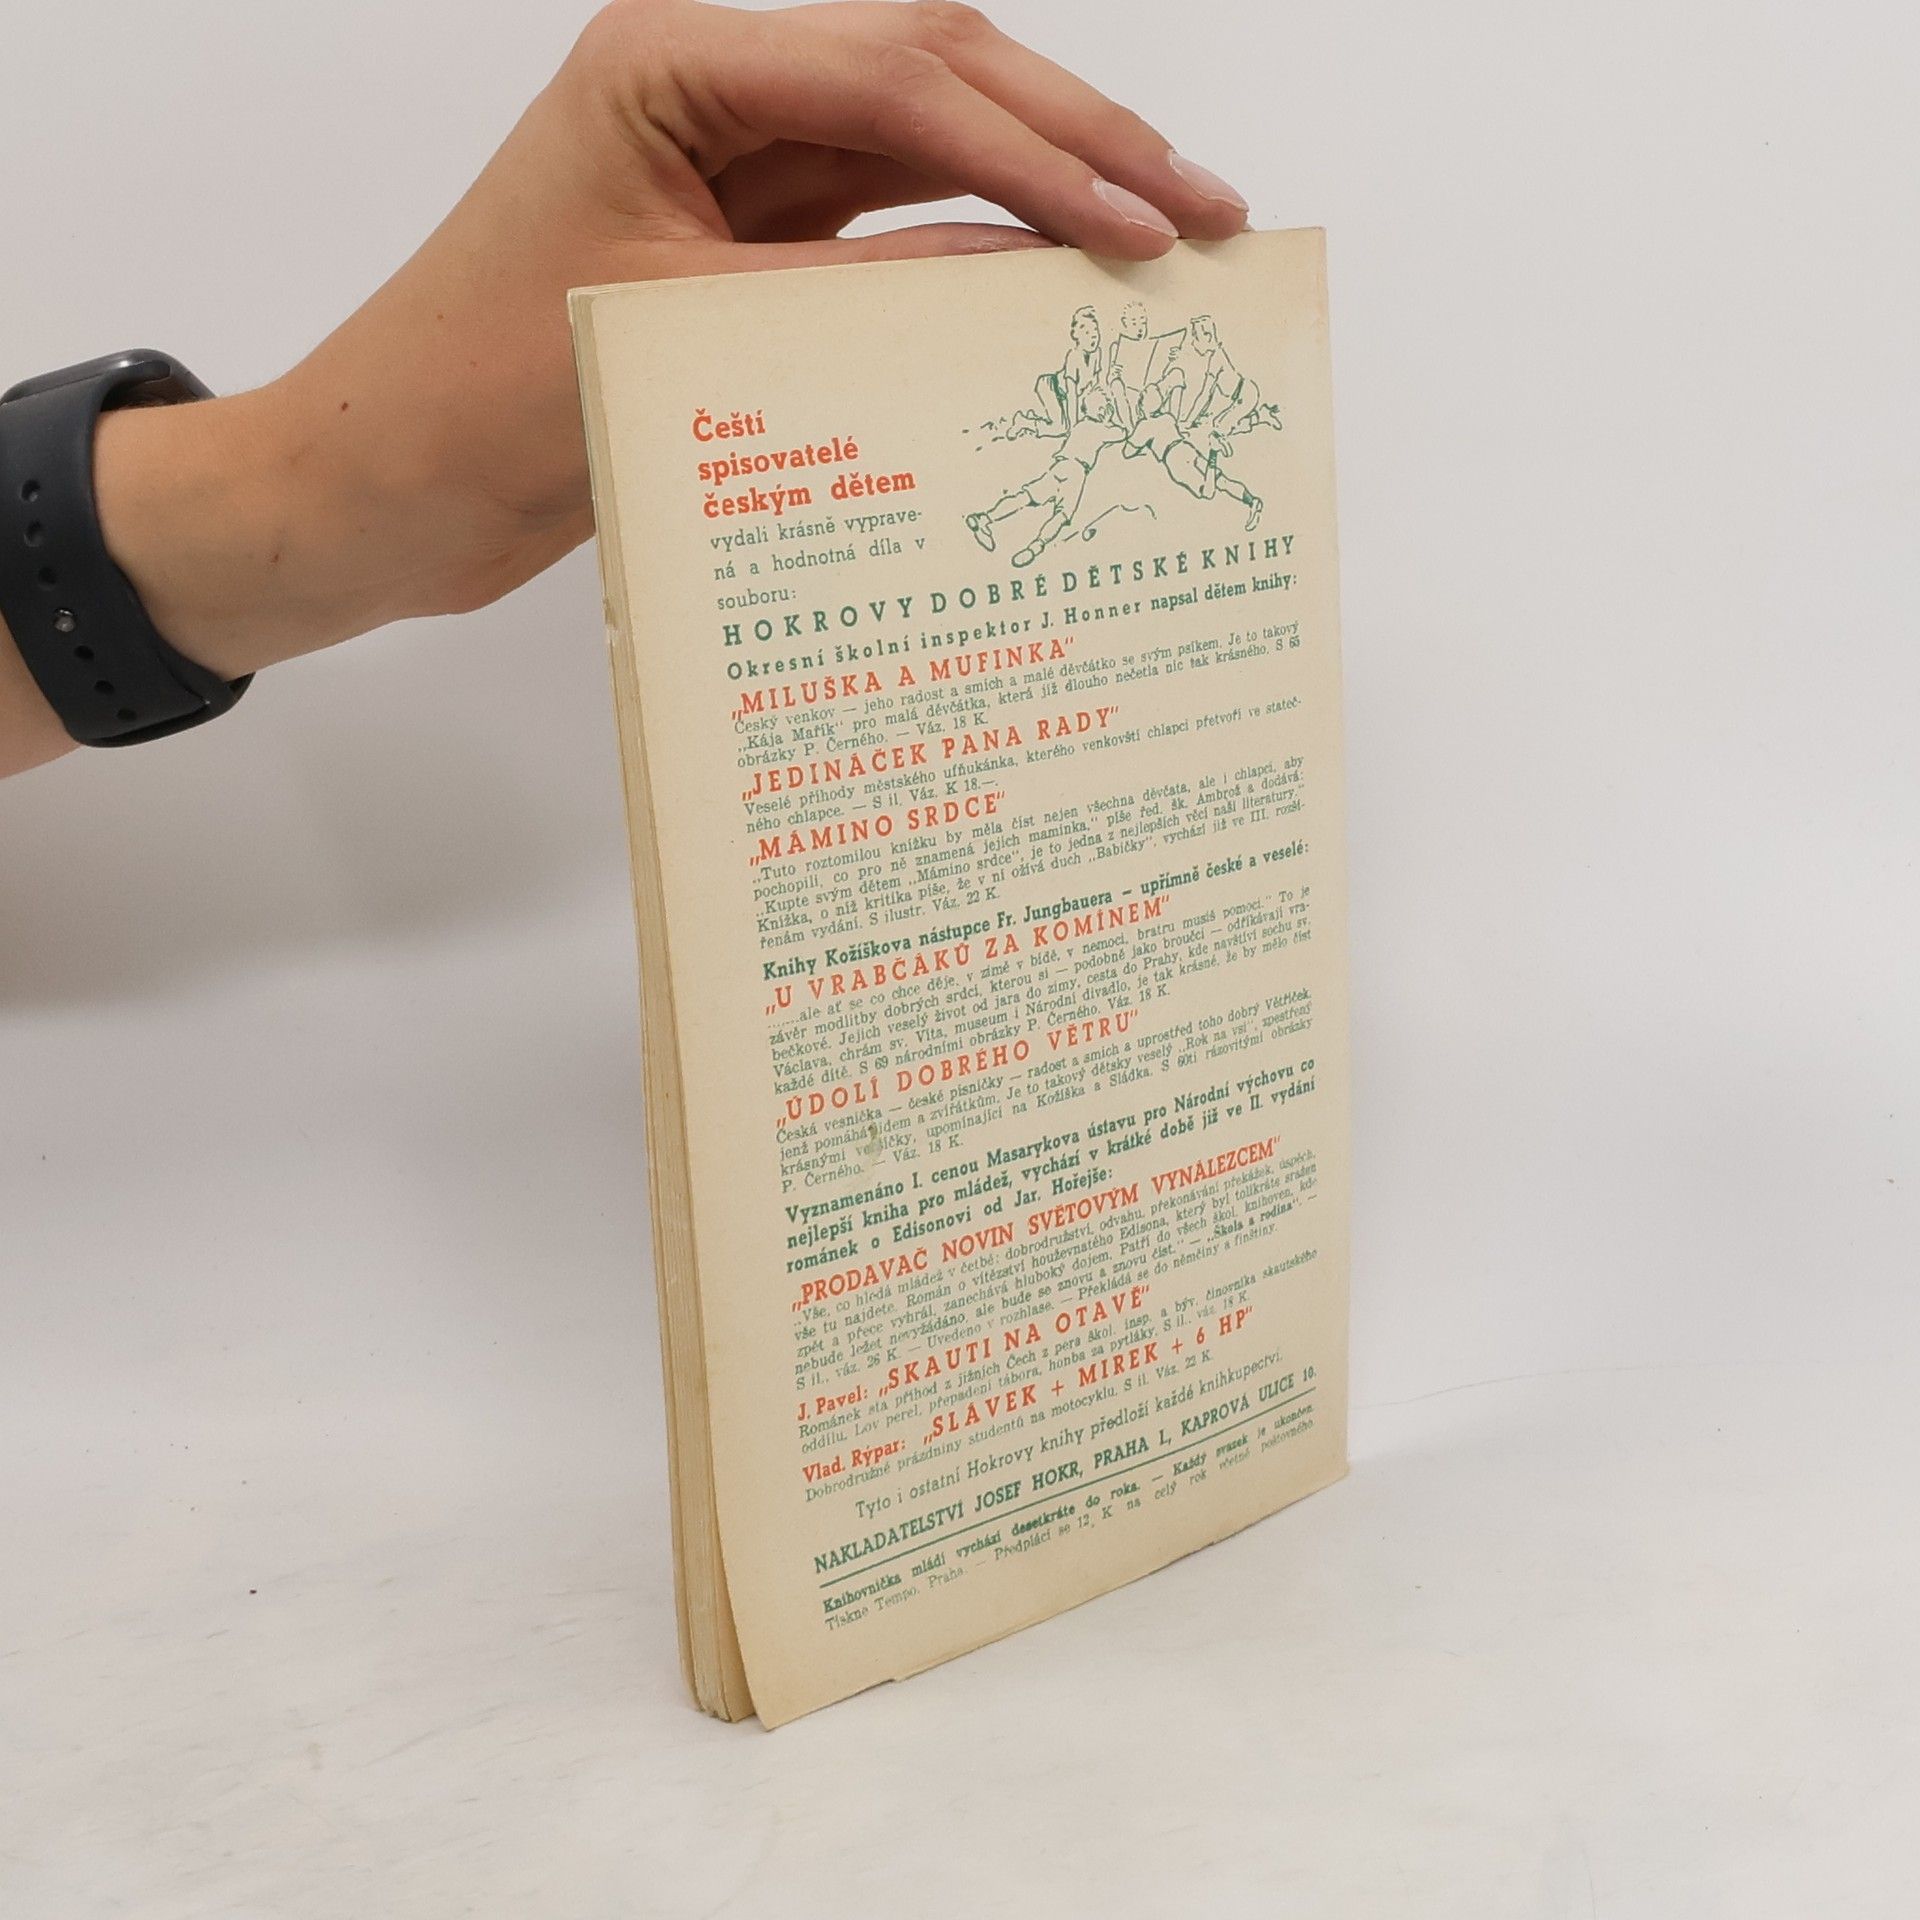 Čeští
spisovatelé
českým dětem
vydali krásně vyprave-
ná a hodnotná díla v
souboru:
HOKROVY DOBRÉ DĚTSKÉ KNIHY
Okresní školní inspektor J. Honner napsal dětem knihy:
„MILUŠKA A MUFINKA“
Český venkov — jeho radost a smích a malé děvčátko se svým psíkem. Je to takový
„Kája Mařík“ pro malá děvčátka, která již dlouho nečetla nic tak krásného. S 65
obrázky P. Černého. — Váz. 18 K.
„JEDINÁČEK PANA RADY“
Veselé příhody městského ufňukánka, kterého venkovští chlapci přetvoří ve stateč-
ného chlapce. — S il. Váz. K 18.—.
„MÁMINO SRDCE“
„Tuto roztomilou knížku by měla číst nejen všechna děvčata, ale i chlapci, aby
pochopili, co pro ně znamená jejich maminka,“ píše řed. šk. Ambrož a dodává:
„Kupte svým dětem „Mámino srdce“, je to jedna z nejlepších věcí naší literatury.“
Knížka, o níž kritika píše, že v ní ožívá duch „Babičky“, vychází již ve III. rozší-
řeném vydání. S ilustr. Váz. 22 K.
Knihy Kožíškova nástupce Fr. Jungbauera — upřímně české a veselé:
„U VRABČÁKŮ ZA KOMÍNEM“
.......ale ať se co chce děje, v zimě v bídě, v nemoci, bratru musíš pomoci.“ To je
závěr modlitby dobrých srdcí, kterou si — podobně jako broučci — odříkávají vra-
bečkové. Jejich veselý život od jara do zimy, cesta do Prahy, kde navštíví sochu sv.
Václava, chrám sv. Víta, museum i Národní divadlo, je tak krásné, že by mělo číst
každé dítě. S 69 národními obrázky P. Černého. Váz. 18 K.
„ÚDOLÍ DOBRÉHO VĚTRU“
Česká vesnička — české písničky — radost a smích a uprostřed toho dobrý Větříček,
jenž pomáhá lidem a zvířátkům. Je to takový dětsky veselý „Rok na vsi“, zpestřený
krásnými veršíčky, upomínající na Kožíška a Sládka. S 60ti rázovitými obrázky
P. Černého. — Váz. 18 K.
Vyznamenáno I. cenou Masarykova ústavu pro Národní výchovu co
nejlepší kniha pro mládež, vychází v krátké době již ve II. vydání
románek o Edisonovi od Jar. Hořejše:
„PRODAVAČ NOVIN SVĚTOVÝM VYNÁLEZCEM“
„Vše, co hledá mládež v četbě: dobrodružství, odvahu, překonávání překážek, úspěch,
vše tu najdete. Román o vítězství houževnatého Edisona, který byl tolikráte sražen
zpět a přece vyhrál, zanechává hluboký dojem. Patří do všech škol. knihoven, kde
nebude ležet nevyžádáno, ale bude se znovu a znovu číst.“ — „Škola a rodina“. —
S il., váz. 26 K. — Uvedeno v rozhlase. — Překládá se do němčiny a finštiny.
J. Pavel: „SKAUTI NA OTAVĚ“
Románek sta příhod z jižních Čech z pera škol. insp. a býv. činovníka skautského
oddílu. Lov perel, přepadení tábora, honba za pytláky. S il., váz. 18 K.
Vlad. Rýpar: „SLÁVEK + MIREK + 6 HP“
Dobrodružné prázdniny studentů na motocyklu. S il. Váz. 22 K.
Tyto i ostatní Hokrovy knihy předloží každé knihkupectví.
NAKLADATELSTVÍ JOSEF HOKR, PRAHA I., KAPROVÁ ULICE 10.
Knihovnička mládí vychází desetkráte do roka. — Každý svazek je ukončen.
Tiskne Tempo, Praha. — Předplácí se 12, K na celý rok včetně poštovného